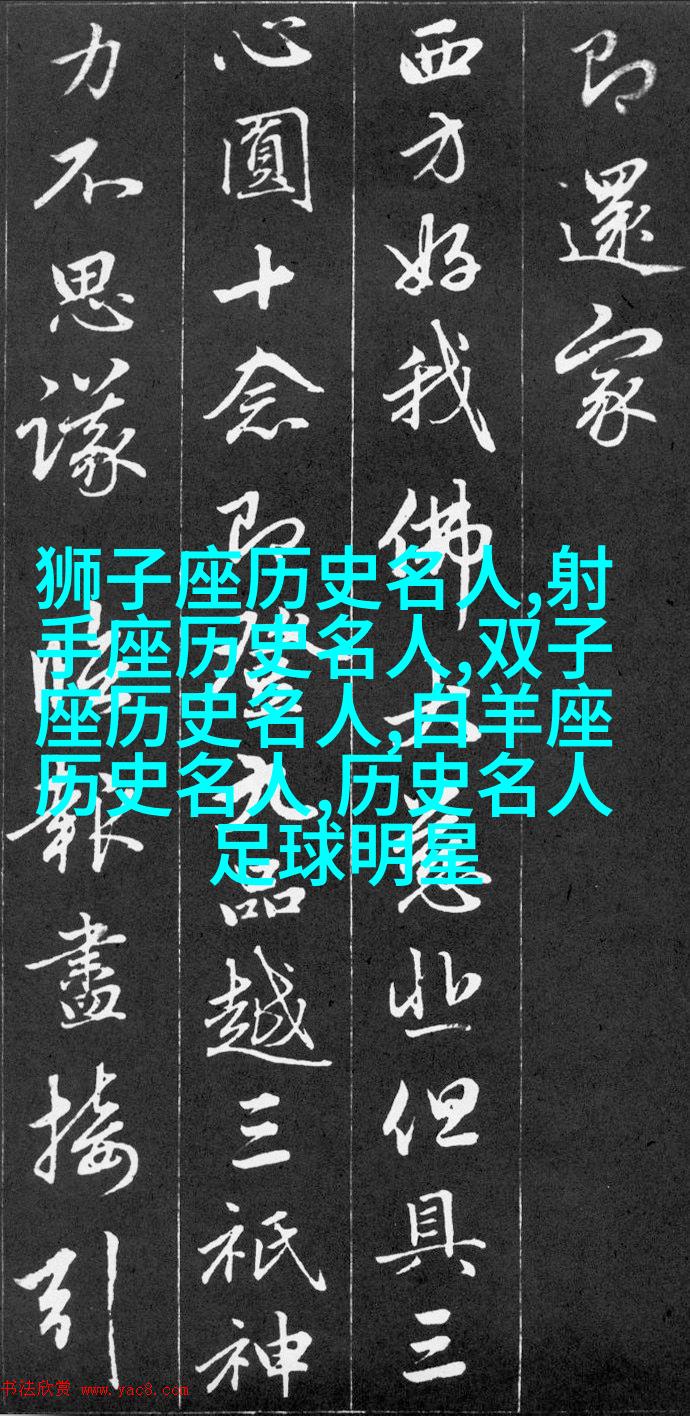 即還家
西方好我佛大慈悲但具三
心圓十念即登九品越三祇神
力不思議臨報盡接引
狮子座历史名人,射
手座历史名人,双子
座历史名人,白羊座
历史名人,历史名人
足球明星
书法欣赏 www.yac8.com